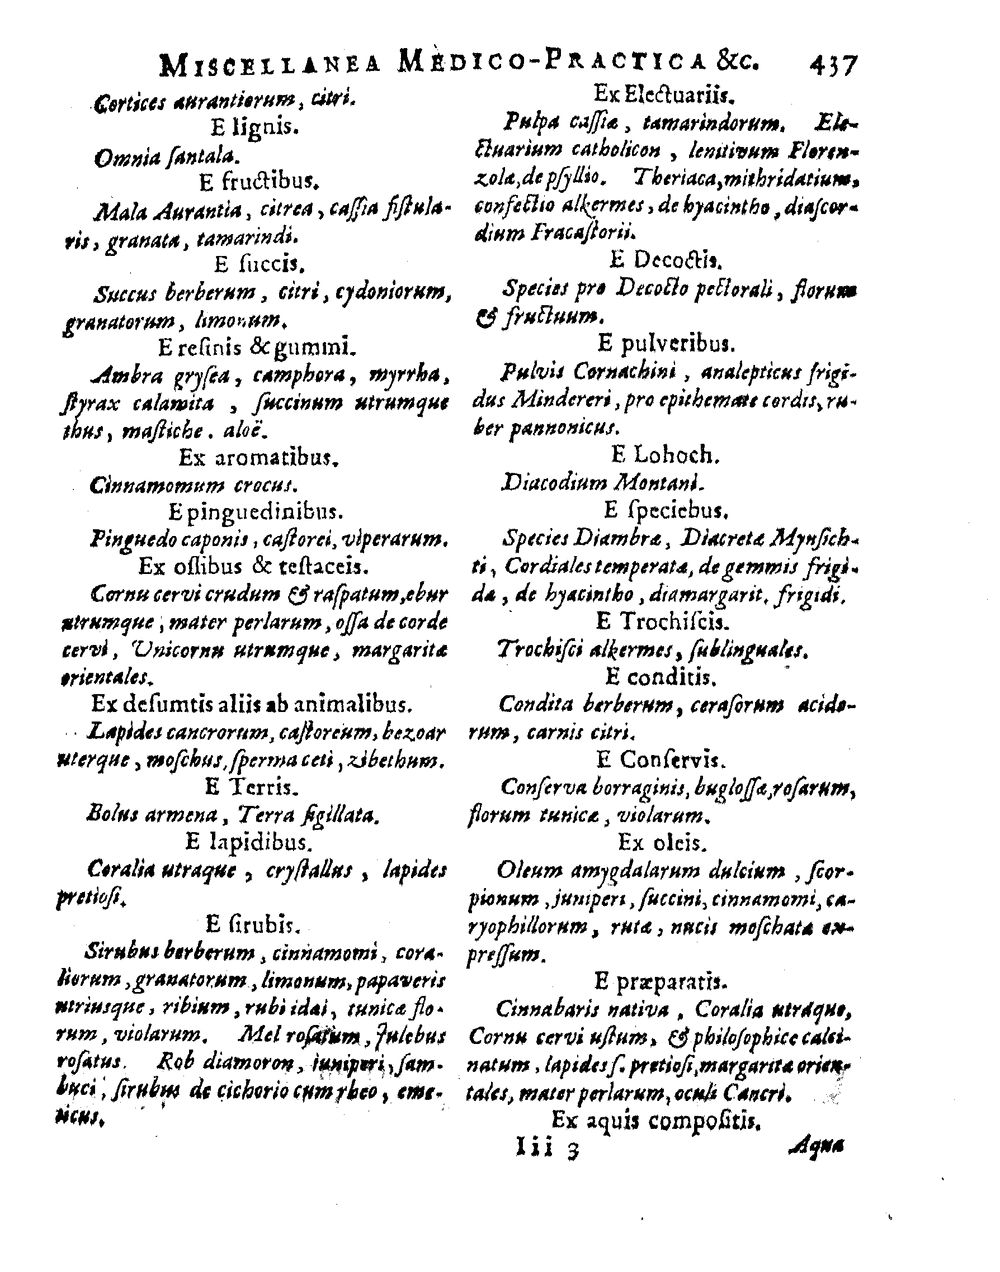 MISCELLANEA MEDICO-PRACTICA &c. 437
Cortices aurantiorum, citri.
E lignis.
Omnia ſantala.
E fructibus.
Mala Aurantia, citrea, caſſia fiſtula-
ris, granata, tamarindi.
E ſuccis.
Succus berberum, citri, cydoniorum,
granatorum, limonum.
E reſinis & gummi.
Ambra gryſea, camphora, myrrha,
ſtyrax calamita, ſuccinum utrumque
thus, maſtiche. aloë.
Ex aromatibus.
Cinnamomum crocus.
E pinguedinibus.
Pinguedo caponis, caſtorei, viperarum.
Ex oſſibus & teſtaceis.
Cornu cervi crudum & raſpatum, ebur
utrumque, mater perlarum, oſſa de corde
cervi, Unicornu utrumque, margaritæ
orientales.
Ex deſumtis aliis ab animalibus.
Lapides cancrorum, caſtoreum, bezoar
uterque, moſchus, ſperma ceti, zibethum.
E Terris.
Bolus armena, Terra ſigillata.
E lapidibus.
Coralia utraque, cryſtallus, lapides
pretioſi.
E ſirubis.
Sirubus berberum, cinnamomi, cora-
liorum, granatorum, limonum, papaveris
utriusque, ribium, rubi idæi, tunicæ flo-
rum, violarum. Mel roſatum, Julebus
roſatus. Rob diamoron, juniperi, ſam-
buci, ſirubus de cichorio cum rheo, eme-
ticus.
Ex Electuariis.
Pulpa caſſiæ, tamarindorum. Ele-
ctuarium catholicon, lenitivum Floren-
zolæ, de pſyllio. Theriaca, mithridatium,
confectio alkermes, de hyacintho, diaſcor-
dium Fracaſtorii.
E Decoctis.
Species pro Decocto pectorali, florum
& fructuum.
E pulveribus.
Pulvis Cornachini, analepticus frigi-
dus Mindereri, pro epithemate cordis, ru-
ber pannonicus.
E Lohoch.
Diacodium Montani.
E ſpeciebus.
Species Diambræ, Diacretæ Mynſich-
ti, Cordiales temperatæ, de gemmis frigi-
dæ, de hyacintho, diamargarit. frigidi.
E Trochiſcis.
Trochiſci alkermes, ſublinguales.
E conditis.
Condita berberum, ceraſorum acido-
rum, carnis citri.
E Conſervis.
Conſerva borraginis, bugloſſæ, roſarum,
florum tunicæ, violarum.
Ex oleis.
Oleum amygdalarum dulcium, ſcor-
pionum, juniperi, ſuccini, cinnamomi, ca-
ryophillorum, rutæ, nucis moſchatæ ex-
preſſum.
E præparatis.
Cinnabaris nativa, Coralia utraque,
Cornu cervi uſtum, & philoſophice calci-
natum, lapides ſ. pretioſi, margaritæ orien-
tales, mater perlarum, oculi Cancri.
Ex aquis compoſitis.
Iii 3 Aqua